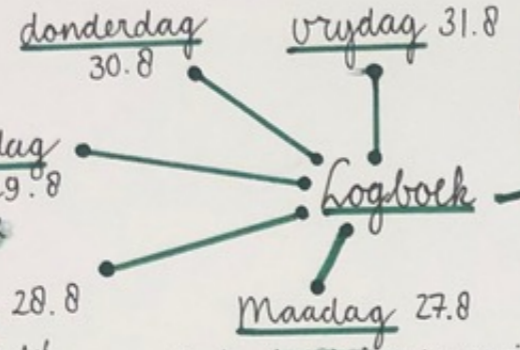 donderdag
30.8
vrydag 31.8
dag
9.8
Logboek
28.8
Maadag 27.8